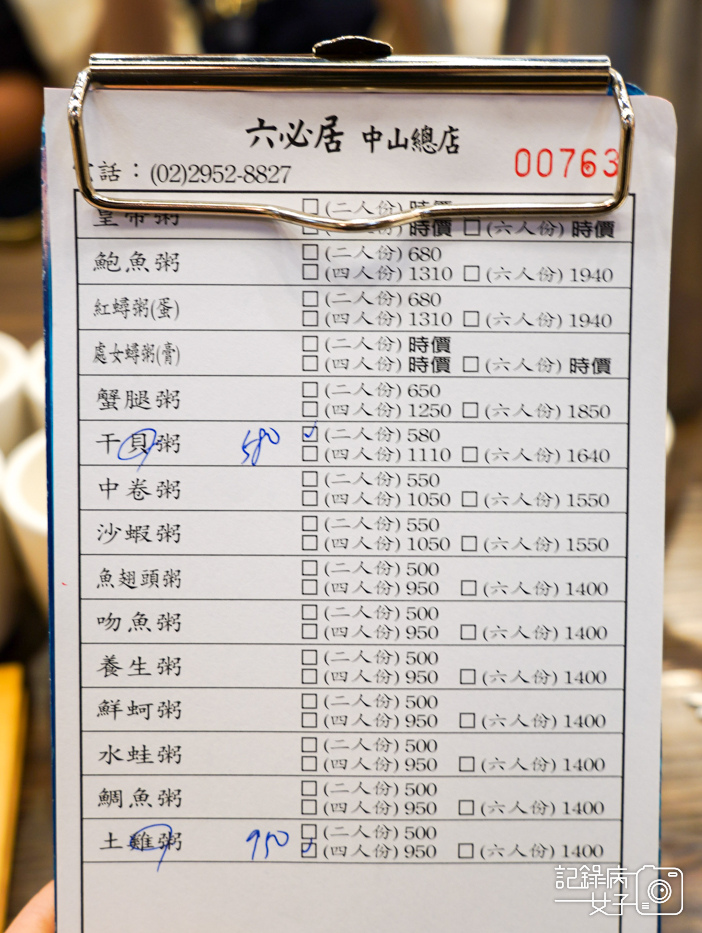 六必居 中山總店
話：(02)2952-8827
00763
皇帝粥 □(二人份)時價
時價 □(六人份)時價
鮑魚粥 □(二人份)680
□(四人份)1310 □(六人份)1940
紅蟳粥(蛋) □(二人份)680
□(四人份)1310 □(六人份)1940
處女蟳粥(膏) □(二人份)時價
□(四人份)時價 □(六人份)時價
蟹腿粥 □(二人份)650
□(四人份)1250 □(六人份)1850
干貝粥 580 ☑(二人份)580
□(四人份)1110 □(六人份)1640
中卷粥 □(二人份)550
□(四人份)1050 □(六人份)1550
沙蝦粥 □(二人份)550
□(四人份)1050 □(六人份)1550
魚翅頭粥 □(二人份)500
□(四人份)950 □(六人份)1400
吻魚粥 □(二人份)500
□(四人份)950 □(六人份)1400
養生粥 □(二人份)500
□(四人份)950 □(六人份)1400
鮮蚵粥 □(二人份)500
□(四人份)950 □(六人份)1400
水蛙粥 □(二人份)500
□(四人份)950 □(六人份)1400
鯛魚粥 □(二人份)500
□(四人份)950 □(六人份)1400
土雞粥 950 □(二人份)500
☑(四人份)950 □(六人份)1400
記錄病
女子